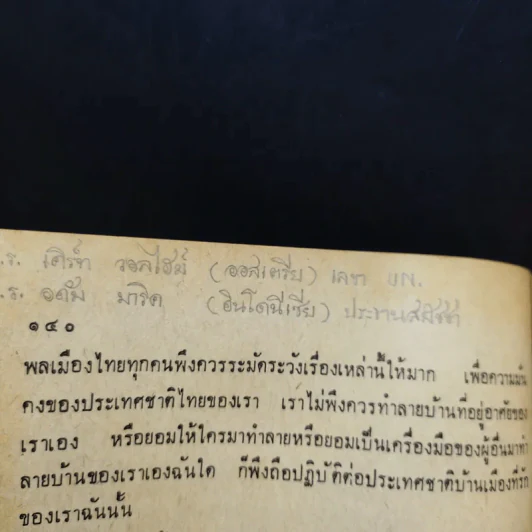 .ร. เคิร์ท วอลไฮม์ (ออสเตรีย) เลขา ยูเอ็น.
.ร. อดัม มาริค (อินโดนีเซีย) ประธานสมัชชา
๑๔๐
พลเมืองไทยทุกคนพึงควรระมัดระวังเรื่องเหล่านี้ให้มาก เพื่อความมั่น
คงของประเทศชาติไทยของเรา เราไม่พึงควรทำลายบ้านที่อยู่อาศัยของ
เราเอง หรือยอมให้ใครมาทำลายหรือยอมเป็นเครื่องมือของผู้อื่นมาทำ
ลายบ้านของเราเองฉันใด ก็พึงถือปฏิบัติต่อประเทศชาติบ้านเมืองที่รัก
ของเราฉันนั้น